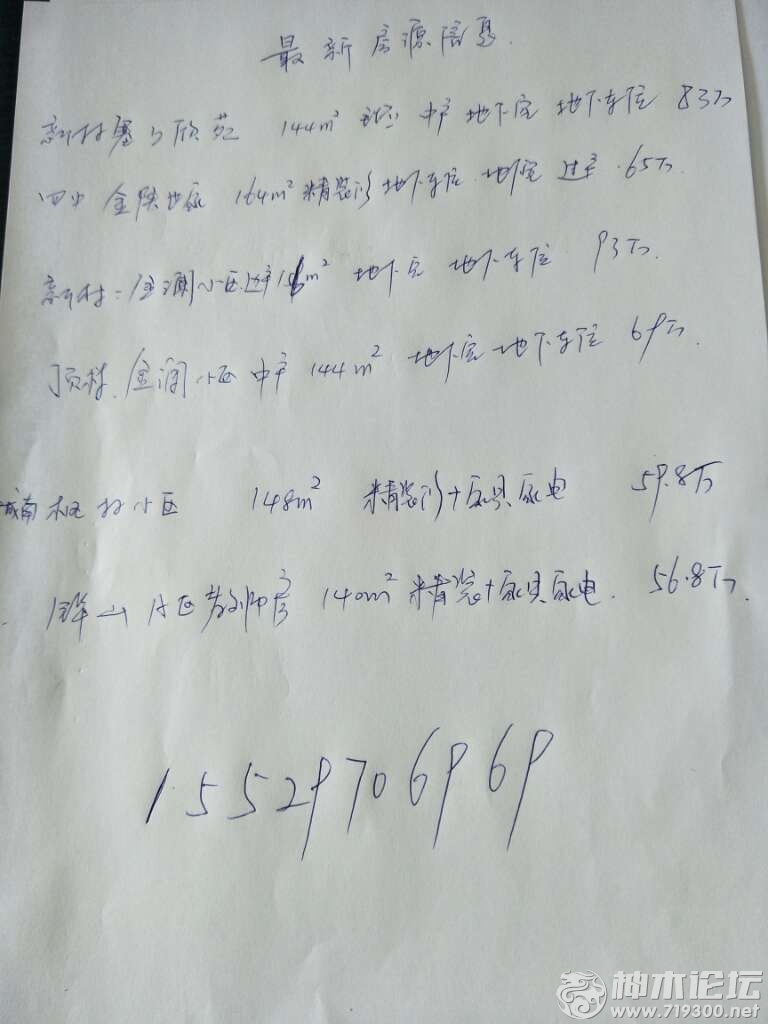 最新房源信息
新村 欣苑 144m² 中户 地下室 地下车位 83万
四中 金 164m² 精装修 地下车位 地下室 边户 65万
新村 金润小区 边户 m² 地下室 地下车位 93万
金润小区 中户 144m² 地下室 地下车位 69万
城南 枫林小区 148m² 精装修+家具家电 59.8万
山片区教师房 140m² 精装+家具家电. 56.8万
15529706969
神木论坛
www.719300.net